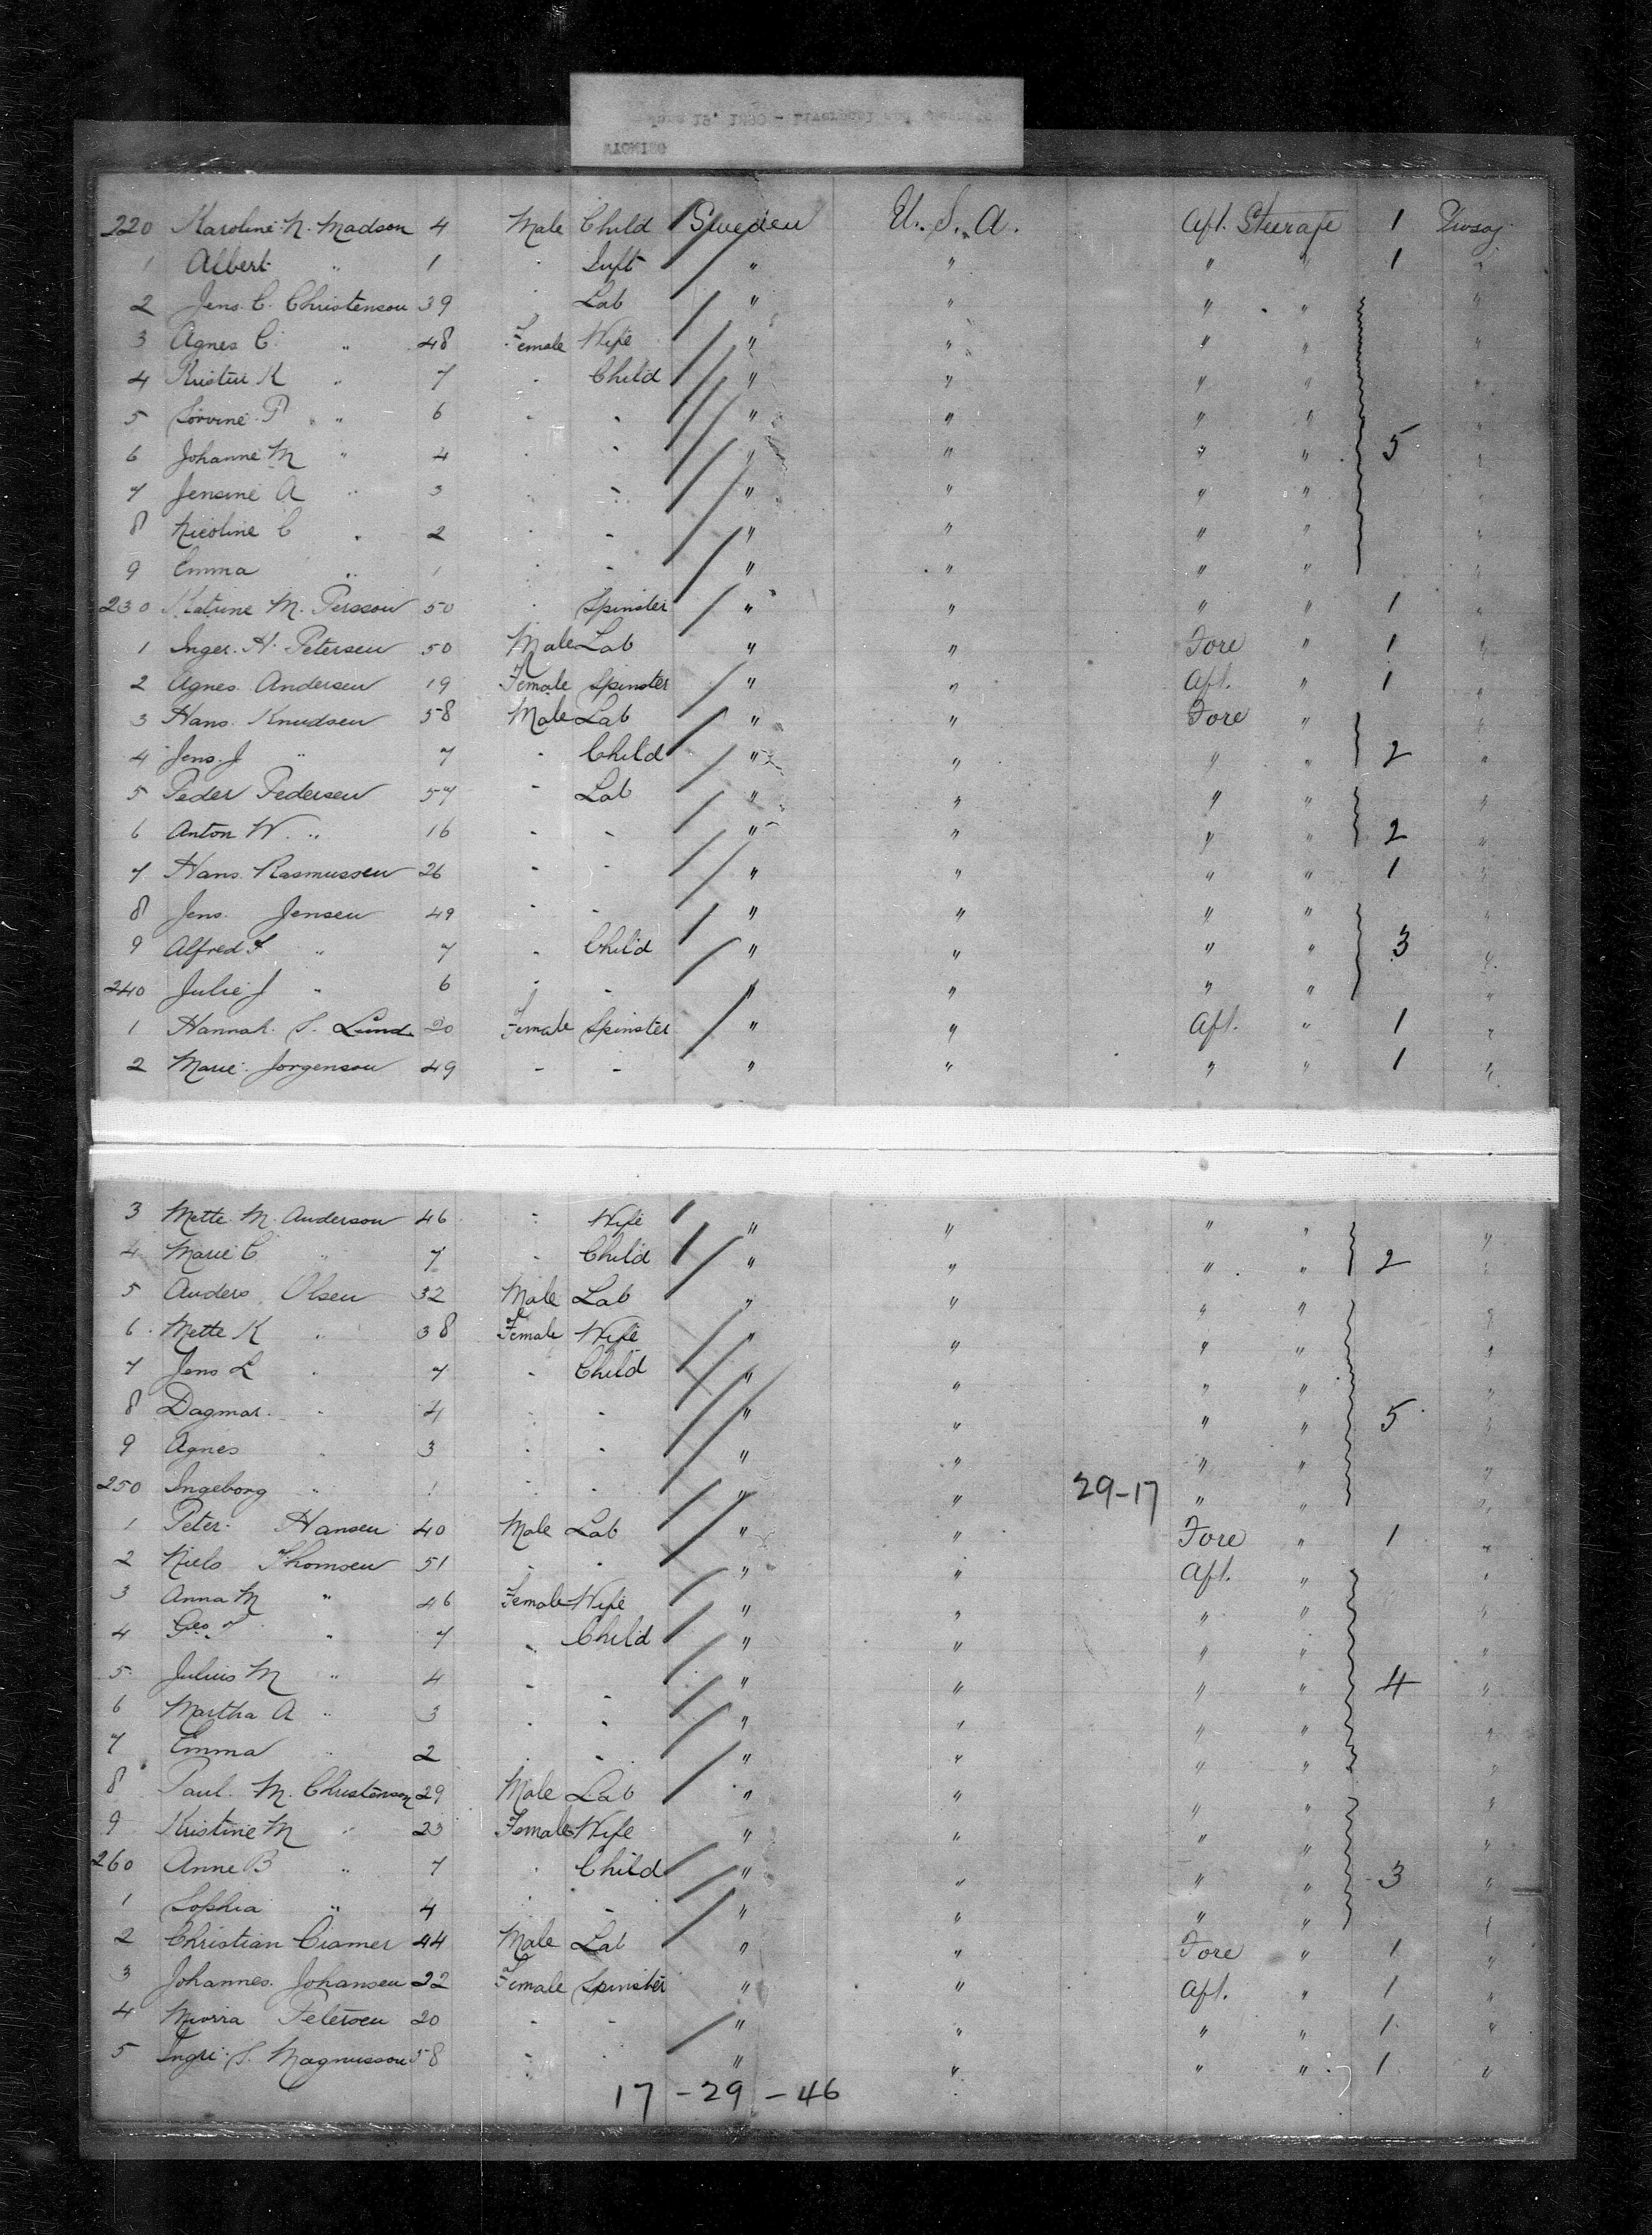 220 Karoline N. Madson 4 Male Child Sweden U.S.A. Aft. Steerage 1
1 Albert " 1 " Inft " " " " 1 "
2 Jens C. Christenson 39 " Lab " " " " "
3 Agnes C. " 48 Female Wife " " " " "
4 Kristen K " 7 " Child " " " " "
5 Sorvine P " 6 " " " " " " "
6 Johanne M " 4 " " " " " " 5 "
7 Jensine A " 3 " " " " " " "
8 Nicoline C " 2 " " " " " " "
9 Emma " 1 " " " " " " "
230 Katrine M. Persson 50 " Spinster " " " " 1 "
1 Inger. H. Petersen 50 Male Lab " " Fore " 1 "
2 Agnes Andersen 19 Female Spinster " " Aft. " 1 "
3 Hans Knudsen 58 Male Lab " " Fore " "
4 Jens. J " 7 " Child " " " " 2 "
5 Peder Pedersen 57 " Lab " " " " "
6 Anton W. " 16 " " " " " " 2 "
7 Hans Rasmussen 26 " " " " " " 1 "
8 Jens. Jensen 49 " " " " " " "
9 Alfred F " 7 " Child " " " " 3 "
240 Julie J " 6 " " " " " " "
1 Hannah S. Lund 20 Female Spinster " " Aft. " 1 "
2 Marie Jorgenson 49 " " " " " " 1 "
3 Mette M. Anderson 46 " Wife " " " " "
4 Marie C " 7 " Child " " " " 2 "
5 Anders Olsen 32 Male Lab " " " " "
6 Mette K " 38 Female Wife " " " " "
7 Jens L " 7 " Child " " " " "
8 Dagmar " 4 " " " " " " 5 "
9 Agnes " 3 " " " " " " "
250 Ingeborg " 1 " " " " 29-17 " " "
1 Peter. Hansen 40 Male Lab " " Fore " 1 "
2 Niels Thomsen 51 " " " " Aft. " "
3 Anna M " 46 Female Wife " " " " "
4 Geo. T " 7 " Child " " " " "
5 Julius M " 4 " " " " " " 4 "
6 Martha A " 3 " " " " " " "
7 Emma " 2 " " " " " " "
8 Paul. M. Christenson 29 Male Lab " " " " "
9 Kristine M " 23 Female Wife " " " " "
260 Anne B " 7 " Child " " " " 3 "
1 Sophia " 4 " " " " " " "
2 Christian Cramer 44 Male Lab " " Fore " 1 "
3 Johannes. Johansen 22 Female Spinster " " Aft. " 1 "
4 Petersen 20 " " " " " " 1 "
5 Ingri. S. Magnusson 58 " " " " " " 1 "
17 - 29 - 46